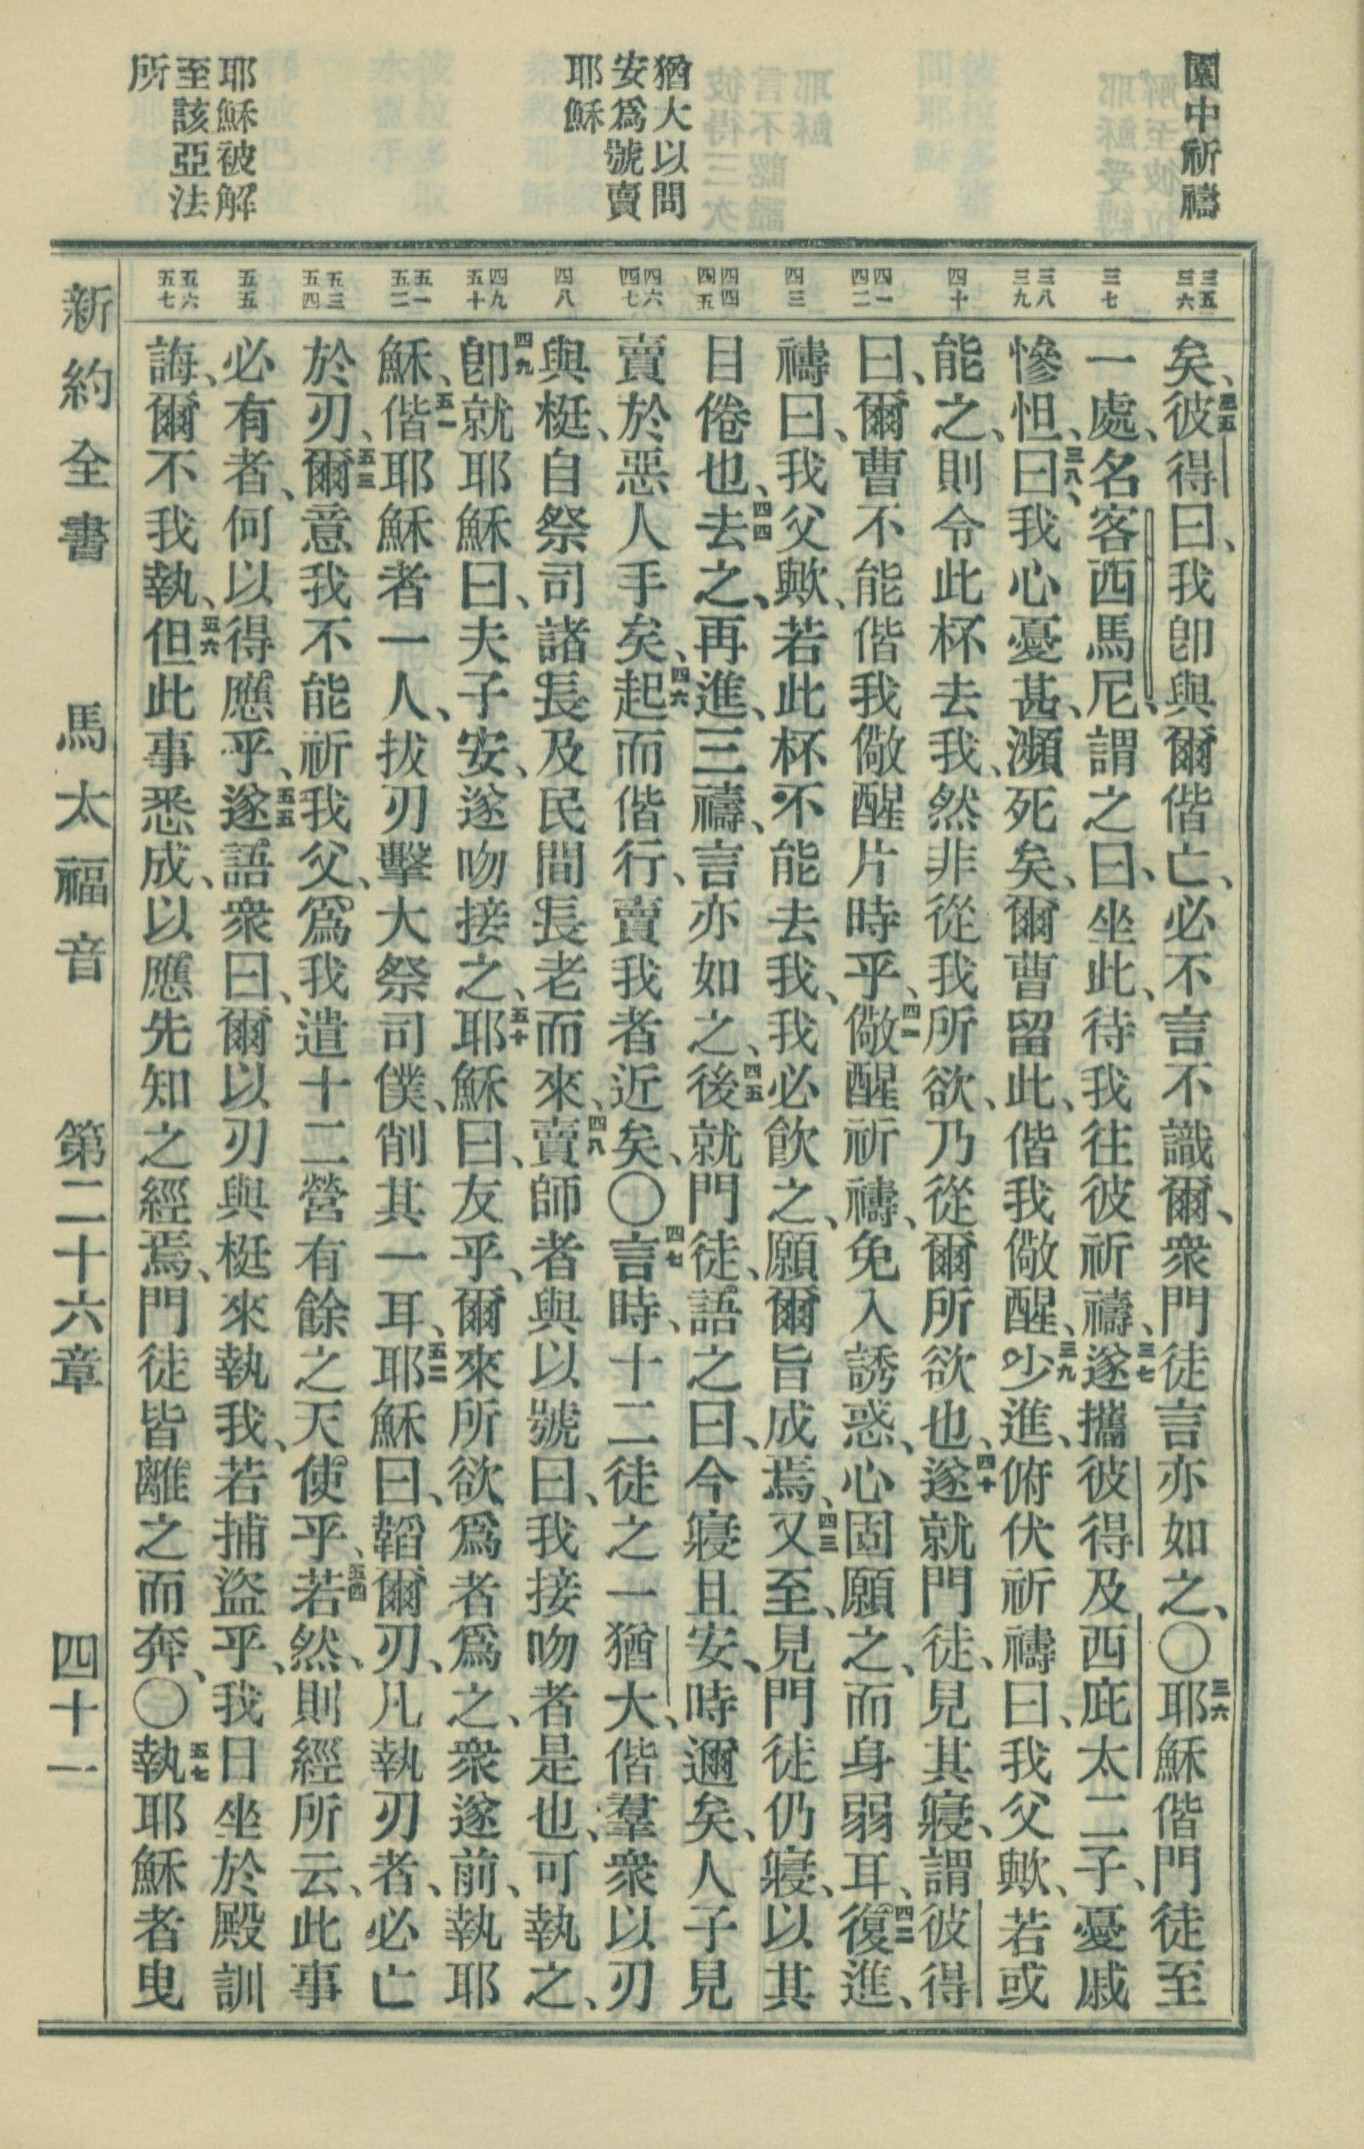 園中祈禱
猶大以問
安爲號賣
耶穌
耶穌被解
至該亞法
所
三五
三六
三七
三八
三九
四十
四一
四二
四三
四四
四五
四六
四七
四八
四九
五十
五一
五二
五三
五四
五五
五六
五七
矣、三五彼得曰、我卽與爾偕亡、必不言不識爾、衆門徒言亦如之、〇三六耶穌偕門徒至
一處、名客西馬尼、謂之曰、坐此、待我往彼祈禱、三七遂攜彼得及西庇太二子、憂戚
慘怛、三八曰、我心憂甚、瀕死矣、爾曹留此、偕我儆醒、三九少進、俯伏祈禱曰、我父歟、若或
能之、則令此杯去我、然非從我所欲、乃從爾所欲也、四十遂就門徒、見其寢、謂彼得
曰、爾曹不能偕我儆醒片時乎、四一儆醒祈禱、免入誘惑、心固願之、而身弱耳、四二復進、
禱曰、我父歟、若此杯不能去我、我必飮之、願爾旨成焉、四三又至、見門徒仍寢、以其
目倦也、四四去之、再進、三禱、言亦如之、四五後就門徒、語之曰、今寢且安、時邇矣、人子見
賣於惡人手矣、四六起而偕行、賣我者近矣、〇四七言時、十二徒之一猶大、偕羣衆以刃
與梃、自祭司諸長及民間長老而來、四八賣師者與以號曰、我接吻者是也、可執之、
四九卽就耶穌曰、夫子安、遂吻接之、五十耶穌曰、友乎、爾來所欲爲者爲之、衆遂前、執耶
穌、五一偕耶穌者一人、拔刃擊大祭司僕、削其一耳、五二耶穌曰、韜爾刃、凡執刃者、必亡
於刃、五三爾意我不能祈我父、爲我遣十二營有餘之天使乎、五四若然、則經所云、此事
必有者、何以得應乎、五五遂語衆曰、爾以刃與梃來執我、若捕盜乎、我日坐於殿訓
誨、爾不我執、五六但此事悉成、以應先知之經焉、門徒皆離之而奔、〇五七執耶穌者曳
新約全書　馬太福音　第二十六章　四十一